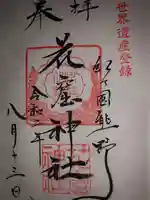 世界遺産登録
奉拝
熊野
花窟神社
令和二年
八月十三日